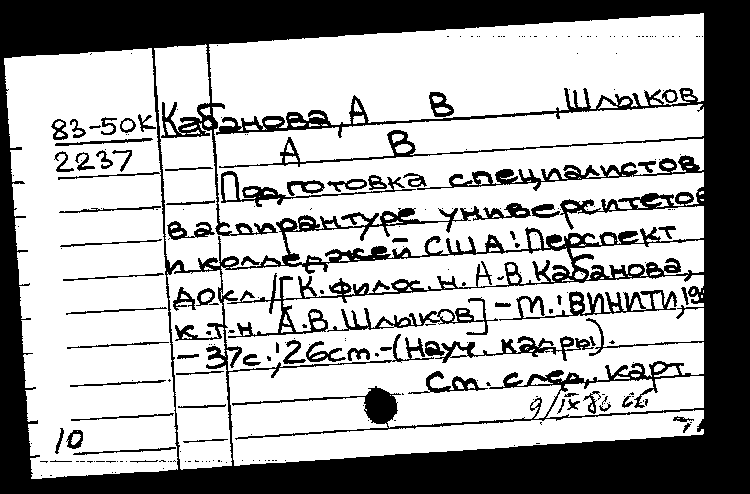 83-50К Кабанова, А В , Шлыков,
2237 А В
Подготовка специалистов
в аспирантуре университетов
и колледжей США: Перспект.
докл./[К. филос. н. А.В. Кабанова,
к.т.н. А.В. Шлыков] - М.: ВИНИТИ, 198
- 37с.; 26см. - (Науч. кадры).
См. след. карт.
9/IX 83
10